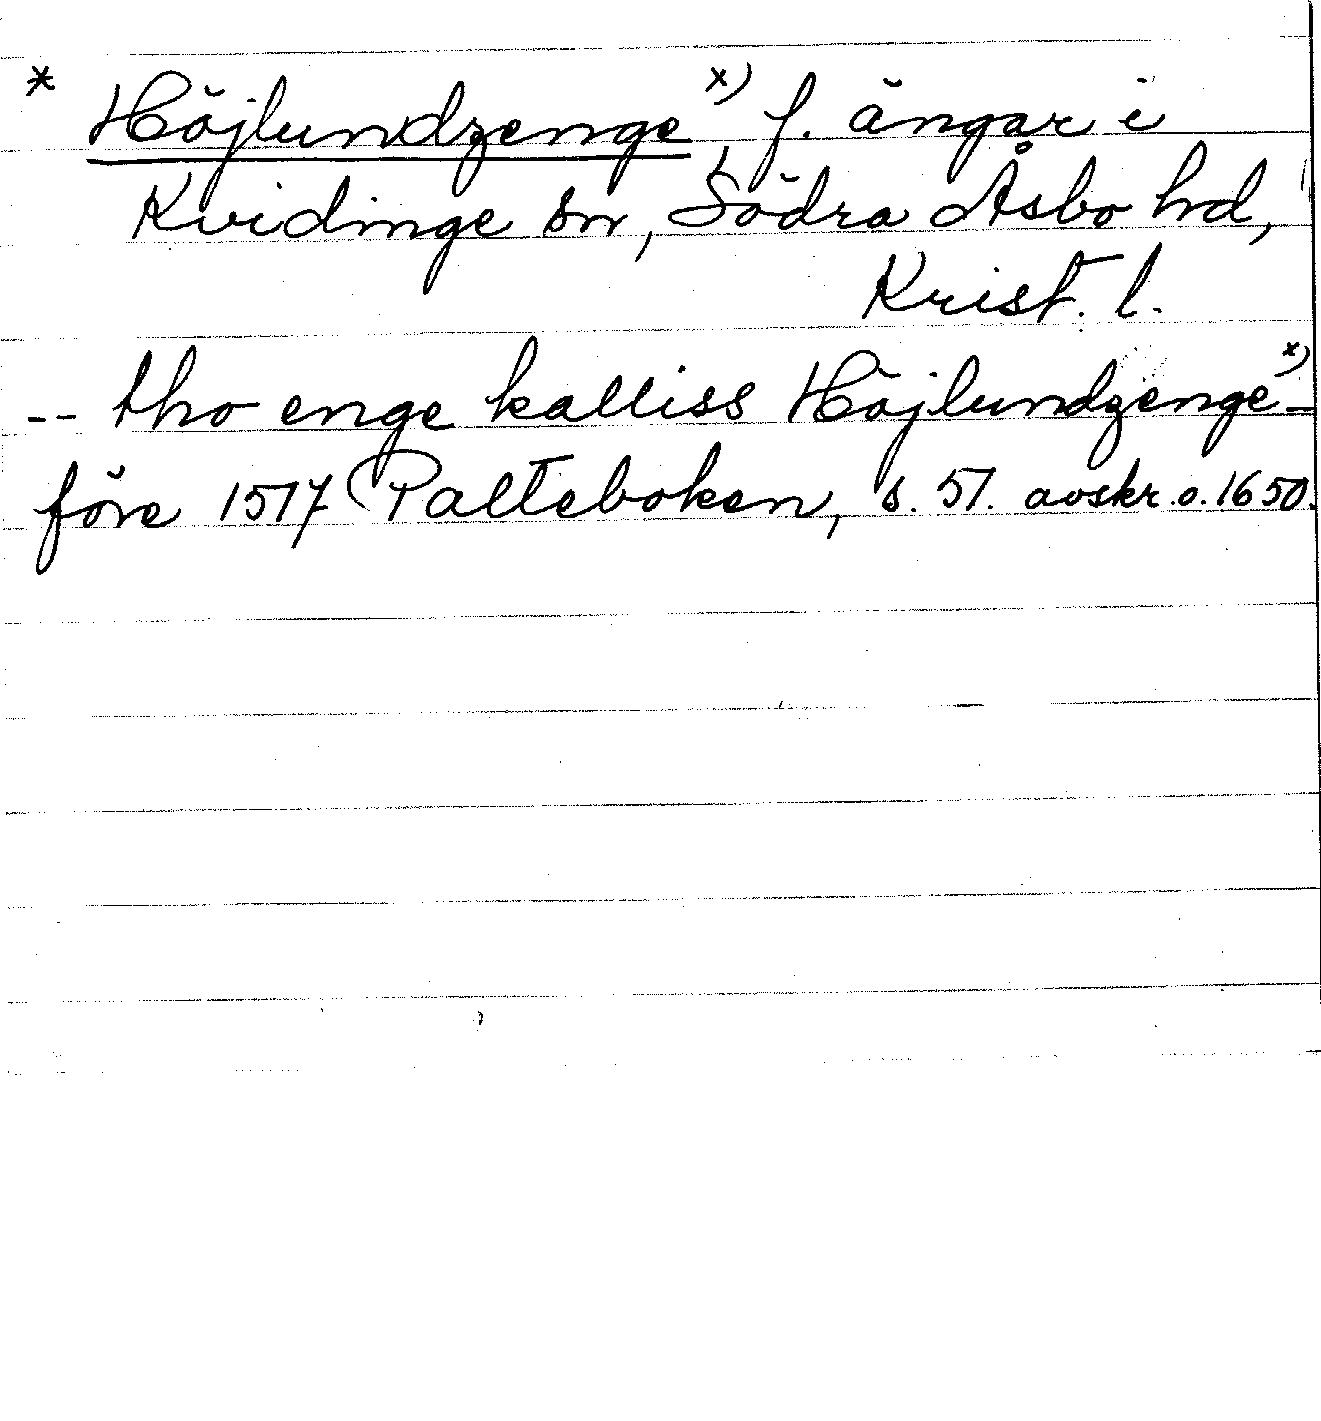 * Höjlundzenge x), f. ängar i
Kvidinge sn, Södra Åsbo hd,
Krist. l.
-- tho enge kalliss Höjlundzenge x) -
före 1517 Palteboken, s. 51. avskr. o. 1650.